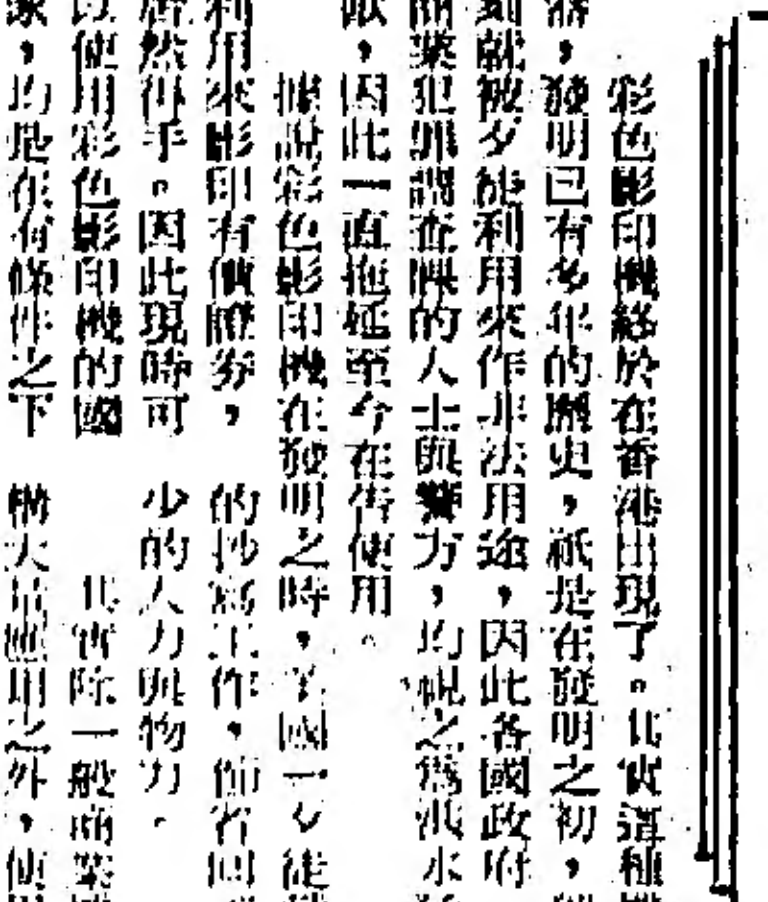 彩色影印機終於在香港出現了。其實這種機
器，發明已有多年的歷史，祇是在發明之初，
刻就被歹徒利用來作非法用途，因此各國政府
商業犯罪調查課的人士與警方，均視之為洪水
獸，因此一直拖延至今在告使用。
據說彩色影印機在發明之時，美國一歹徒
利用來影印有價證券，
唐然得手。因此現時可
以使用彩色影印機的國
家，均是在有條件之下
的抄寫工作，節省回
少的人力與物力。
其實除一般商業機
構大量應用之外，使用